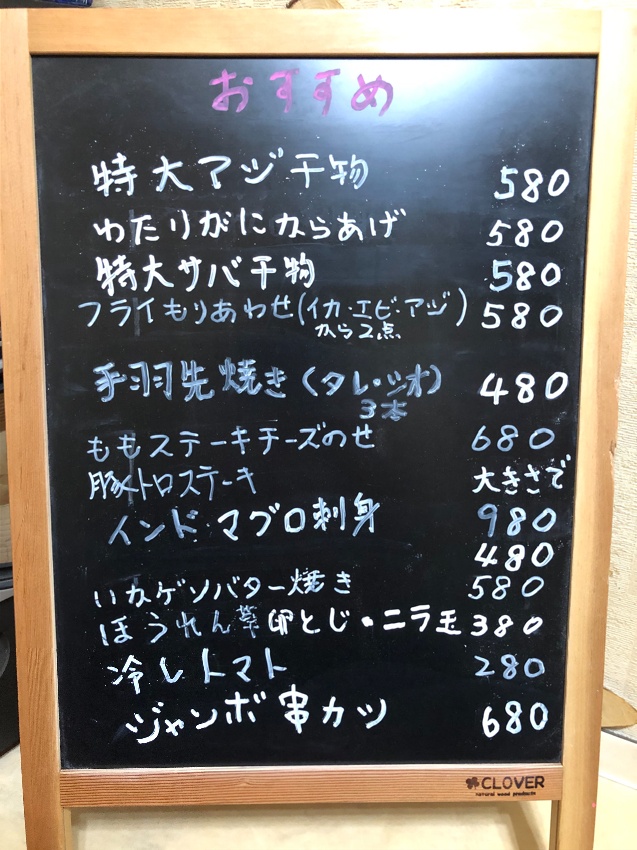 おすすめ
特大アジ干物 580
わたりがにからあげ 580
特大サバ干物 580
フライもりあわせ(イカ・エビ・アジ) 580
から2点
手羽先焼き(タレ・シオ) 480
3本
ももステーキチーズのせ 680
豚トロステーキ 大きさで
インドマグロ刺身 980
480
いかゲソバター焼き 580
ほうれん草卵とじ・ニラ玉 380
冷しトマト 280
ジャンボ串カツ 680
CLOVER
natural wood products